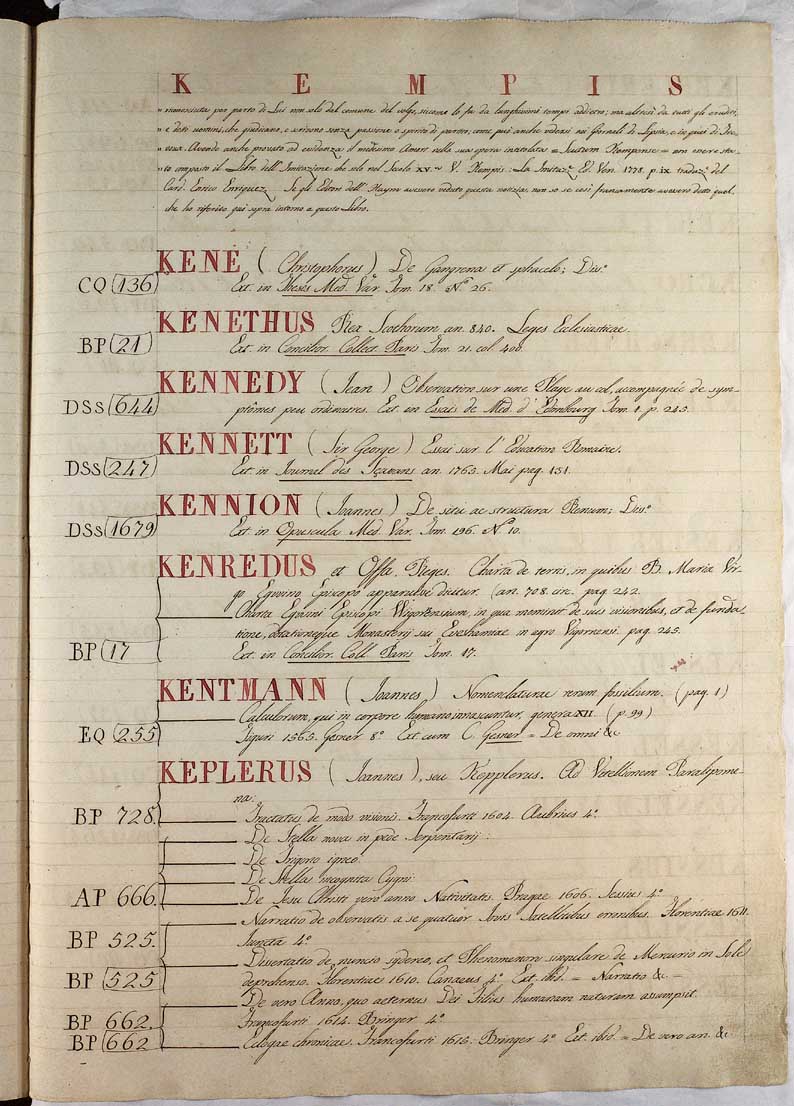 K E M P I S
riconosciuta per parto di Lui non solo dal comune del volgo, siccome lo fu da lunghissimi tempi addietro; ma altresì da tutti gli eruditi,
e dotti uomini, che giudicano, e scrivono senza passione o spirito di partito; come può anche vedersi ne' Giornali di Lipsia, e in quei di Tre-
voux. Avendo anche provato ad evidenza il medesimo Amort nella sua opera intitolata = Scutum Kempense = non avere sta-
to composto il Libro dell' Imitazione che solo nel Secolo XV. ~ V. Kempis: La Imitaz.e Ed. Ven. 1778. p. IX. traduz.e del
Card. Enrico Enriquez. Se gli Editori dell' Haym avessero veduta questa notizia, non so se così francamente avessero detto quel,
che ho riferito qui sopra intorno a questo Libro.
KENE ( Christophorus ) De Gangrena et sphacelo; Dis.o
CQ 136 Ext. in Theses Med. Var. Tom. 18. N.o 26.
KENETHUS Rex Scothorum an. 840. Leges Ecclesiasticae.
BP 21 Ext. in Concilior. Collect. Paris Tom. 21. col. 400.
KENNEDY ( Jean ) Observation sur une Playe au col, acompagnée de sym-
DSS 644 ptômes peu ordinaires. Ext. en Essais de Med. d' Edimbourg Tom. 1. p. 245.
KENNETT ( Sir George ) Essai sur l' Education Romaine.
DSS 247 Ext. in Journal des Sçavans an. 1765. Mai pag. 151.
KENNION ( Joannes ) De situ ac structura Renum; Dis.o
DSS 1679 Ext. in Opuscula Med. Var. Tom. 196. N.o 10.
KENREDUS et Offa. Reges. Charta de terris, in quibus B. Maria Vir-
go Egwino Episcopo apparuisse dicitur. (an. 708. circ. pag. 242.
Charta Egwini Episcopi Wigorniensium, in qua meminit de suis visionibus, et de funda-
tione, dotationeque Monasterij sui Eveshamiae in agro Vigornensi. pag. 245.
BP 17 Ext. in Concilior. Coll. Paris Tom. 17.
KENTMANN ( Joannes ) Nomenclaturae rerum fossilium. (pag. 1)
Calculorum, qui in corpore humano innascuntur, genera XII. (p. 99)
EQ 255 Tiguri 1565. Gesner 8.o Ext. cum C. Gesner = De omni &c
KEPLERUS ( Joannes ), seu Kepplerus. Ad Vitellionem Paralipome-
na.
BP 728. Tractatus de modo visionis. Francofurti 1604. Aubrius 4.o
De Stella nova in pede Serpentarij.
De Trigono igneo.
De Stella incognita Cygni.
AP 666. De Jesu Christi vero anno Nativitatis. Pragae 1606. Sessius 4.o
Narratio de observatis a se quatuor Jovis Satellitibus omnibus. Florentiae 1611.
BP 525. Juncta 4.o
Dissertatio de nuncio sydereo, et Phenomenon singulare de Mercurio in Sole
BP 525 deprehenso. Florentiae 1610. Canaeus 4.o Ext. ibid. = Narratio &. =
De vero Anno, quo aeternus Dei Filius humanam naturam assumpsit.
BP 662. Francofurti 1614. Bringer 4.o
BP 662 Eclogae chronicae. Francofurti 1615. Bringer 4.o Ext. ibid. = De vero an. &c